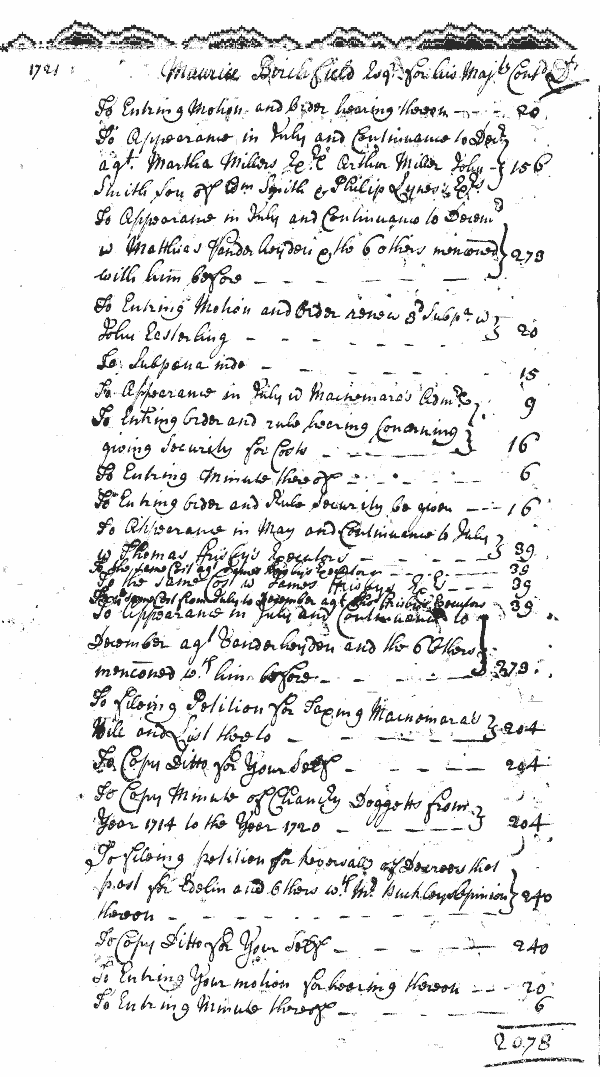 1721 Maurice Birchfield Esqr. for his Majts Contd Dr
To Entring Motion and Order hearing thereon 20
To Appearance in July and Continuance to Decr
agt. Martha Millers Exrx Arthur Miller John 156
Smith son of Smith & Philip Lynes's Exrs
To Appearance in July and Continuance to Decemr
w Matthias Vanderheyden & the 6 others menconed 273
with him before
To Entring Motion and Order renew Subpa w
John Easterling 20
To Subpena inde 15
To Appearance in July w Macnemara's Admrx 9
To Entring Order and rule hearing Concerning
giving Security for Costs 16
To Entring Minute thereof 6
To Entring Order and Rule Security be given 16
To Appearance in May and Continuance to July
w Thomas Frisby's Executors 39
To the same Cost agt James Frisby's Executors 39
To the same Cost w James Frisby's Exrs 39
To the same Cost from July to December agt Tho: Frisbys Executors 39
To Appearance in July and Continuance to
December agt Vanderheyden and the 6 Others
menconed wth him before 273
To fileing Petition for Taxing Macnemara's
Bill and List thereto 204
To Copy Ditto for Your Self 204
To Copy Minute of Chancry Doggetts from
Year 1714 to the Year 1720 204
To fileing petition for Reversall of Decrees that
past for Edelin and Others wth Mr Buckleys Opinion 240
thereon
To Copy Ditto for Your Self 240
To Entring Your motion for hearing thereon 20
To Entring Minute thereof 6
2078